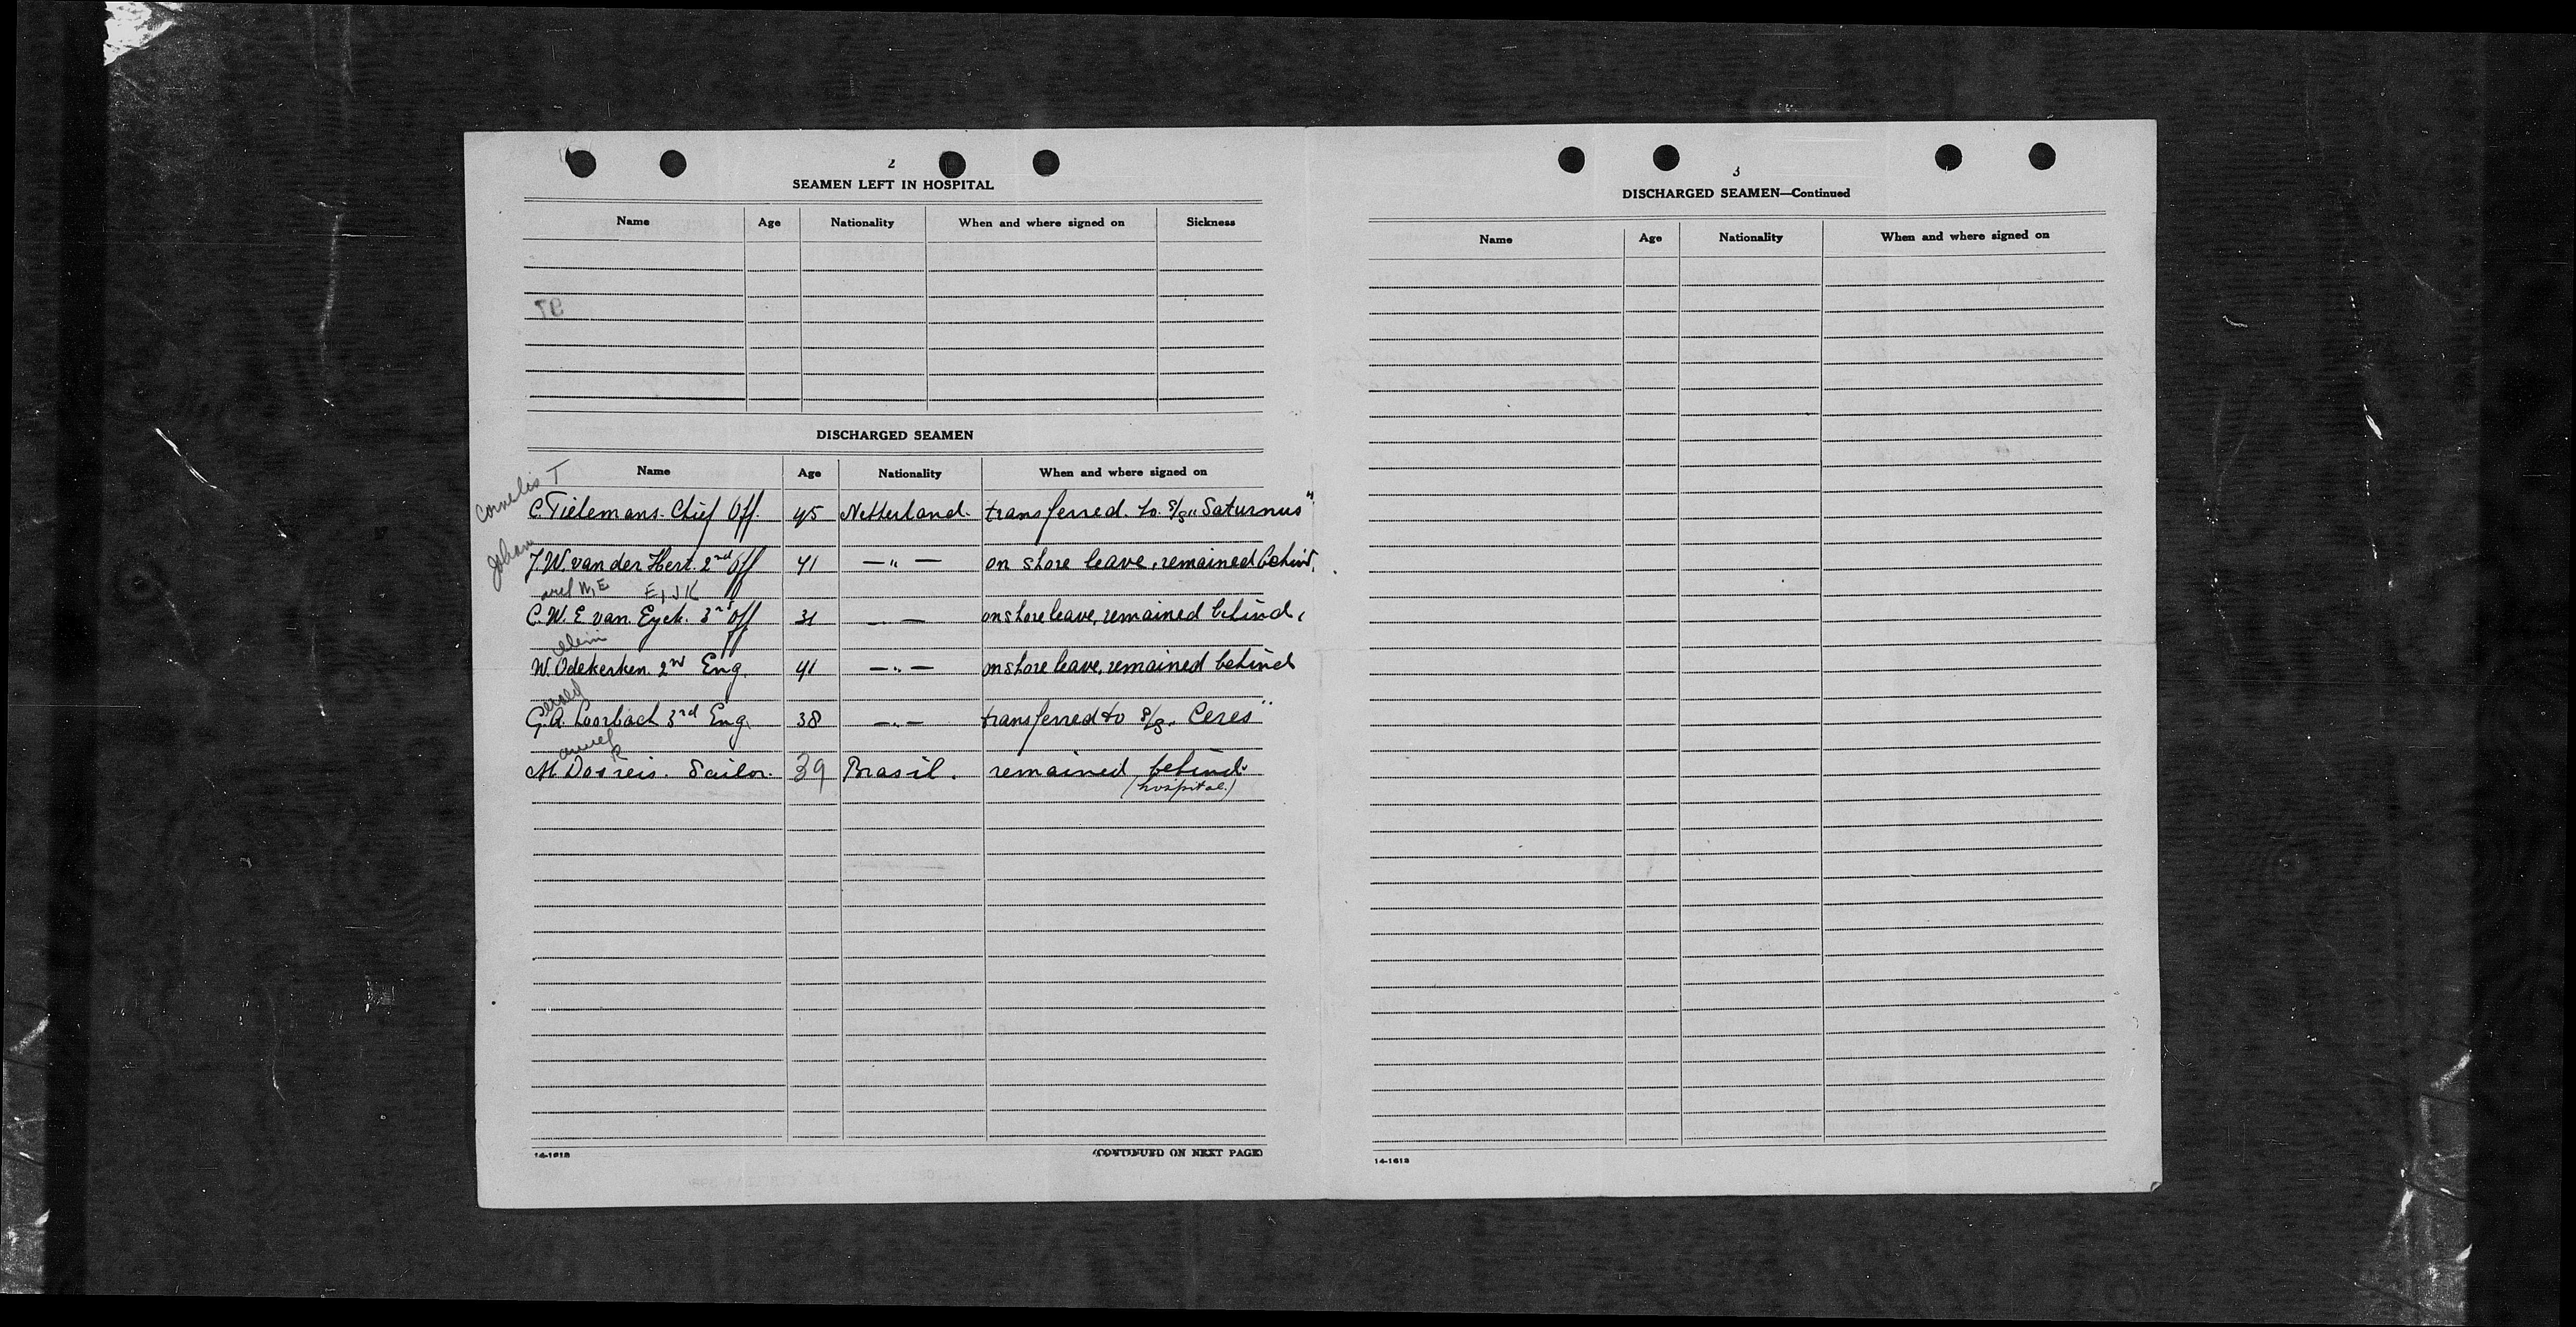 2
SEAMEN LEFT IN HOSPITAL
Name Age Nationality When and where signed on Sickness
DISCHARGED SEAMEN
Name Age Nationality When and where signed on
Cornelis T
C. Tielemans. Chief Off. 45 Netherland. transferred. to. S/S „Saturnus"
Johan
J. W. van der Hert. 2nd Off 41 — " — on shore leave, remained behind,
arel W, E EIJK
C. W. E van Eyck. 3rd Off 31 — — on shore leave, remained behind,
illem
W. Odekerken. 2nd Eng. 41 — " — on shore leave, remained behind
erard
G. A. Loorbach 3rd Eng. 38 — . — transferred to S/S „ Ceres"
anuel R
M Dos reis. Sailor. 39 Brasil. remained behind.
(hospital.)
14-1618
(CONTINUED ON NEXT PAGE)
3
DISCHARGED SEAMEN—Continued
Name Age Nationality When and where signed on
14-1618